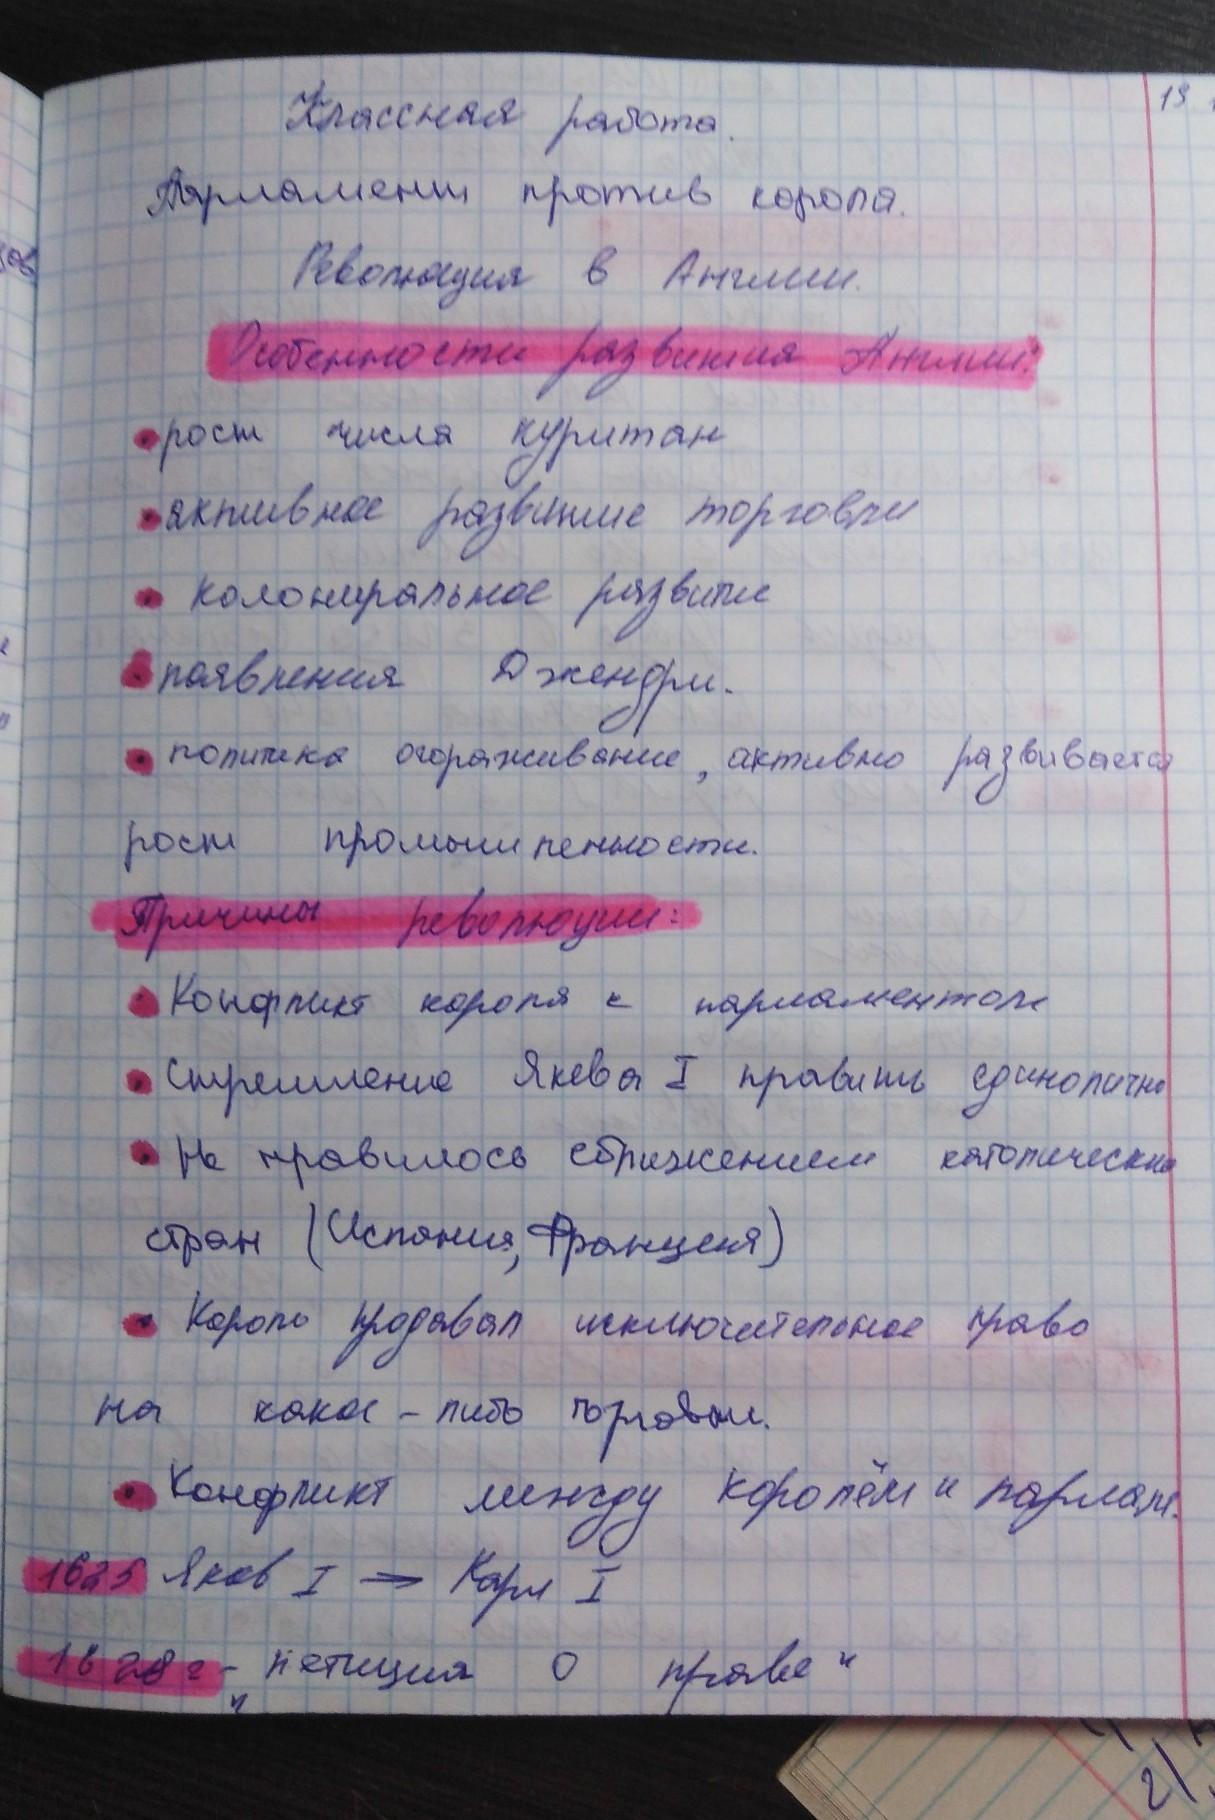 Классная работа.
Парламент против короля.
Революция в Англии.
Особенности развития Англии:
• рост числа пуритан
• активное развитие торговли
• колониральное развитие
• появления Джендри.
• политика огораживание, активно развивается
рост промышленности.
Причины революции:
• Конфликт короля с парламентом
• Стремление Якова I править единолично
• Не нравилось сближением католических
стран (Испания, Франция)
• Король продавал исключительное право
на какое-либо торговли.
• Конфликт между королём и парлам.
1625 Яков I → Карл I
1628 г - "петиция о праве"